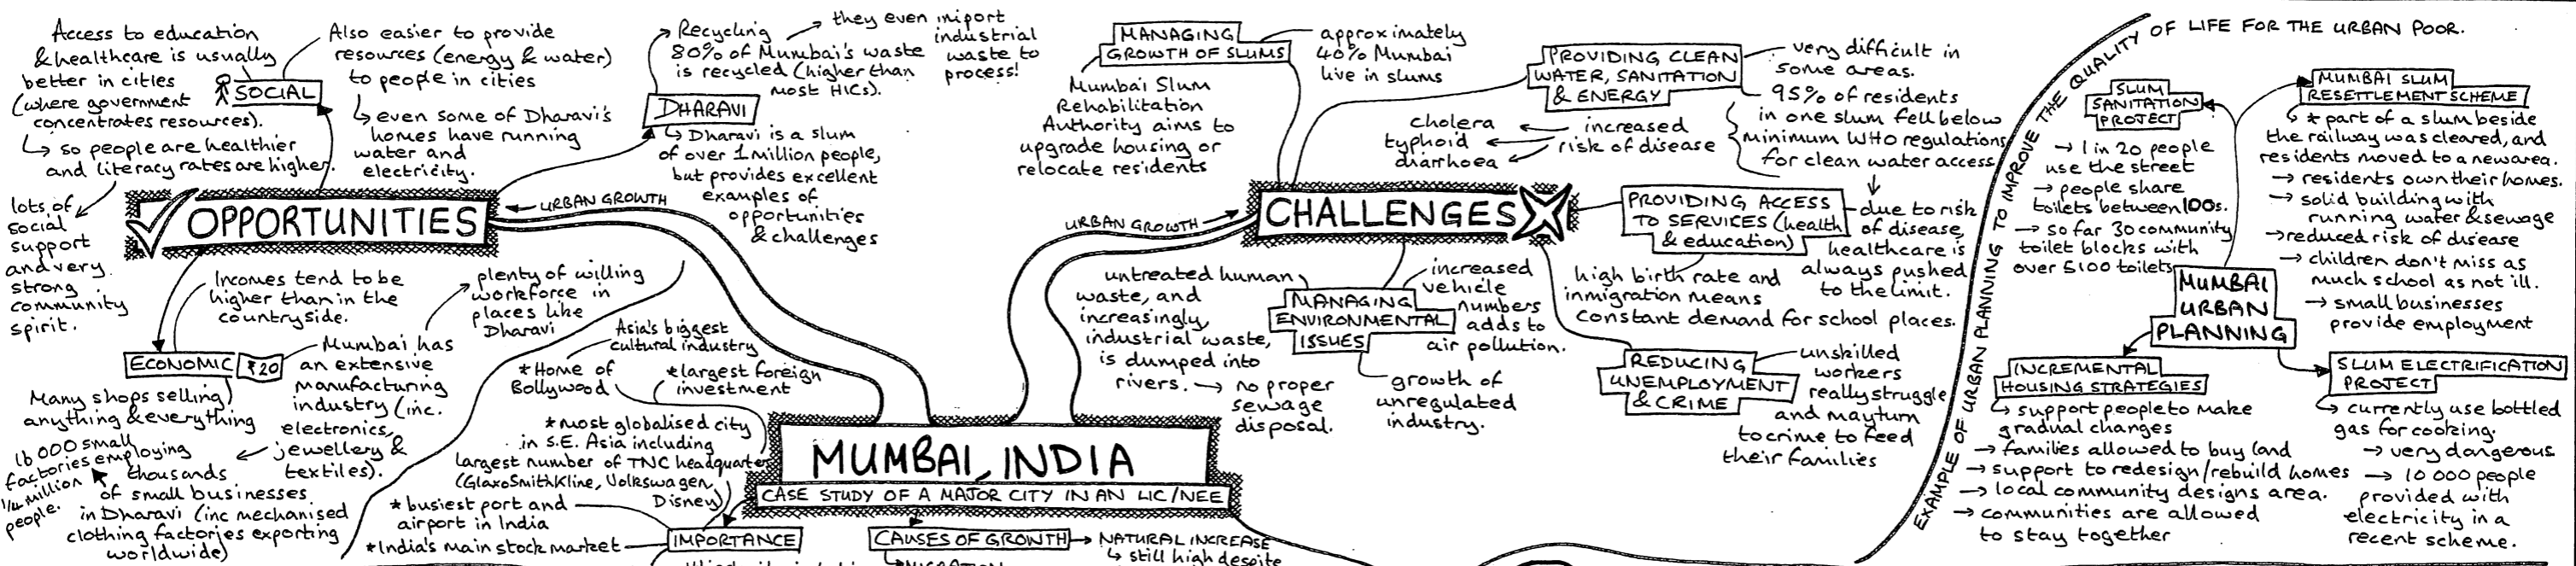 Access to education
& healthcare is usually
better in cities
(where government
concentrates resources).
↳ so people are healthier
and literacy rates are higher.
lots of
social
support
and very
strong
community
spirit.
SOCIAL
Also easier to provide
resources (energy & water)
to people in cities
↳ even some of Dharavi's
homes have running
water and
electricity.
→ Recycling
80% of Mumbai's waste
is recycled (higher than
most HICs).
→ they even import
industrial
waste to
process!
DHARAVI
↳ Dharavi is a slum
of over 1 million people,
but provides excellent
examples of
opportunities
& challenges
OPPORTUNITIES
← URBAN GROWTH
Incomes tend to be
higher than in the
countryside.
plenty of willing
workforce in
places like
Dharavi
ECONOMIC ₹20
Mumbai has
an extensive
manufacturing
industry (inc.
electronics,
jewellery &
textiles).
Many shops selling
anything & everything
thousands
of small businesses
in Dharavi (inc mechanised
clothing factories exporting
worldwide)
small
factories employing
1/4 million
people.
Asia's biggest
cultural industry
*Home of
Bollywood
*largest foreign
investment
*most globalised city
in S.E. Asia including
largest number of TNC headquarters
(GlaxoSmithKline, Volkswagen,
Disney)
*busiest port and
airport in India
*India's main stock market
IMPORTANCE
MUMBAI, INDIA
CASE STUDY OF A MAJOR CITY IN AN LIC/NEE
CAUSES OF GROWTH → NATURAL INCREASE
↳ still high despite
MIGRATION
URBAN GROWTH →
CHALLENGES
MANAGING
GROWTH OF SLUMS
approximately
40% Mumbai
live in slums
Mumbai Slum
Rehabilitation
Authority aims to
upgrade housing or
relocate residents
PROVIDING CLEAN
WATER, SANITATION
& ENERGY
very difficult in
some areas.
95% of residents
in one slum fell below
minimum WHO regulations
for clean water access
increased
risk of disease
cholera
typhoid
diarrhoea
PROVIDING ACCESS
TO SERVICES (health
& education)
due to risk
of disease,
healthcare is
always pushed
to the limit.
high birth rate and
inmigration means
constant demand for school places.
MANAGING
ENVIRONMENTAL
ISSUES
untreated human
waste, and
increasingly,
industrial waste,
is dumped into
rivers. → no proper
sewage
disposal.
increased
vehicle
numbers
adds to
air pollution.
growth of
unregulated
industry.
REDUCING
UNEMPLOYMENT
& CRIME
unskilled
workers
really struggle
and may turn
to crime to feed
their families
EXAMPLE OF URBAN PLANNING TO IMPROVE THE QUALITY OF LIFE FOR THE URBAN POOR.
SLUM
SANITATION
PROJECT
→ 1 in 20 people
use the street
→ people share
toilets between 100s.
→ so far 30 community
toilet blocks with
over 5100 toilets
MUMBAI SLUM
RESETTLEMENT SCHEME
↳ * part of a slum beside
the railway was cleared, and
residents moved to a new area.
→ residents own their homes.
→ solid building with
running water & sewage
→ reduced risk of disease
→ children don't miss as
much school as not ill.
→ small businesses
provide employment
MUMBAI
URBAN
PLANNING
INCREMENTAL
HOUSING STRATEGIES
↳ support people to make
gradual changes
→ families allowed to buy land
→ support to redesign/rebuild homes
→ local community designs area.
→ communities are allowed
to stay together
SLUM ELECTRIFICATION
PROJECT
↳ currently use bottled
gas for cooking.
→ very dangerous
→ 10 000 people
provided with
electricity in a
recent scheme.